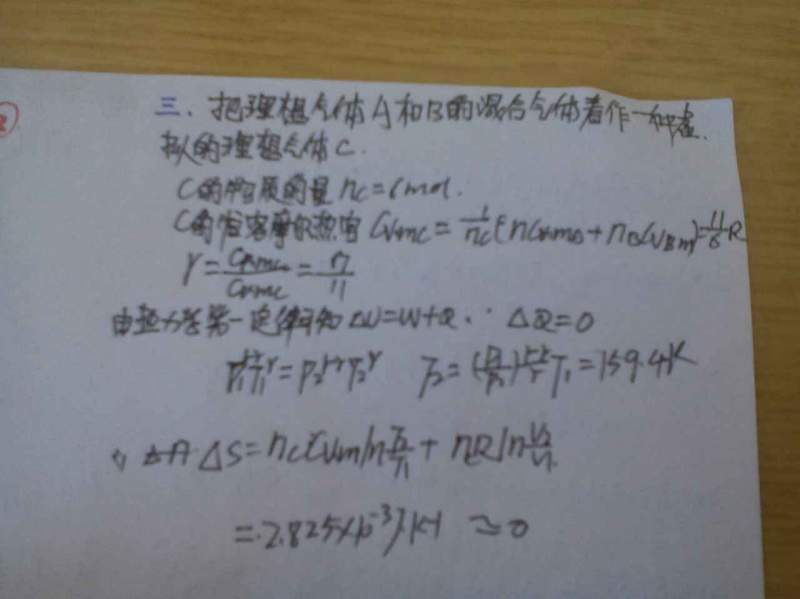 三、把理想气体A和B的混合气体看作一种虚
拟的理想气体C.
C的物质的量 nc=6mol.
C的恒容摩尔热容 CVmC = 1/nc (nCVmA + nBCVBm) = 11/6 R
γ = CPmC/CVmC = 17/11
由热力学第一定律可知 ΔU=W+Q. ∵ ΔQ=0
P1^(1-γ)T1^γ = P2^(1-γ)T2^γ T2 = T1 = 159.4K
ΔS = ncCVm ln T2/T1 + ncR ln V2/V1
= 2.825×10^-3 J·K-1 ≈ 0